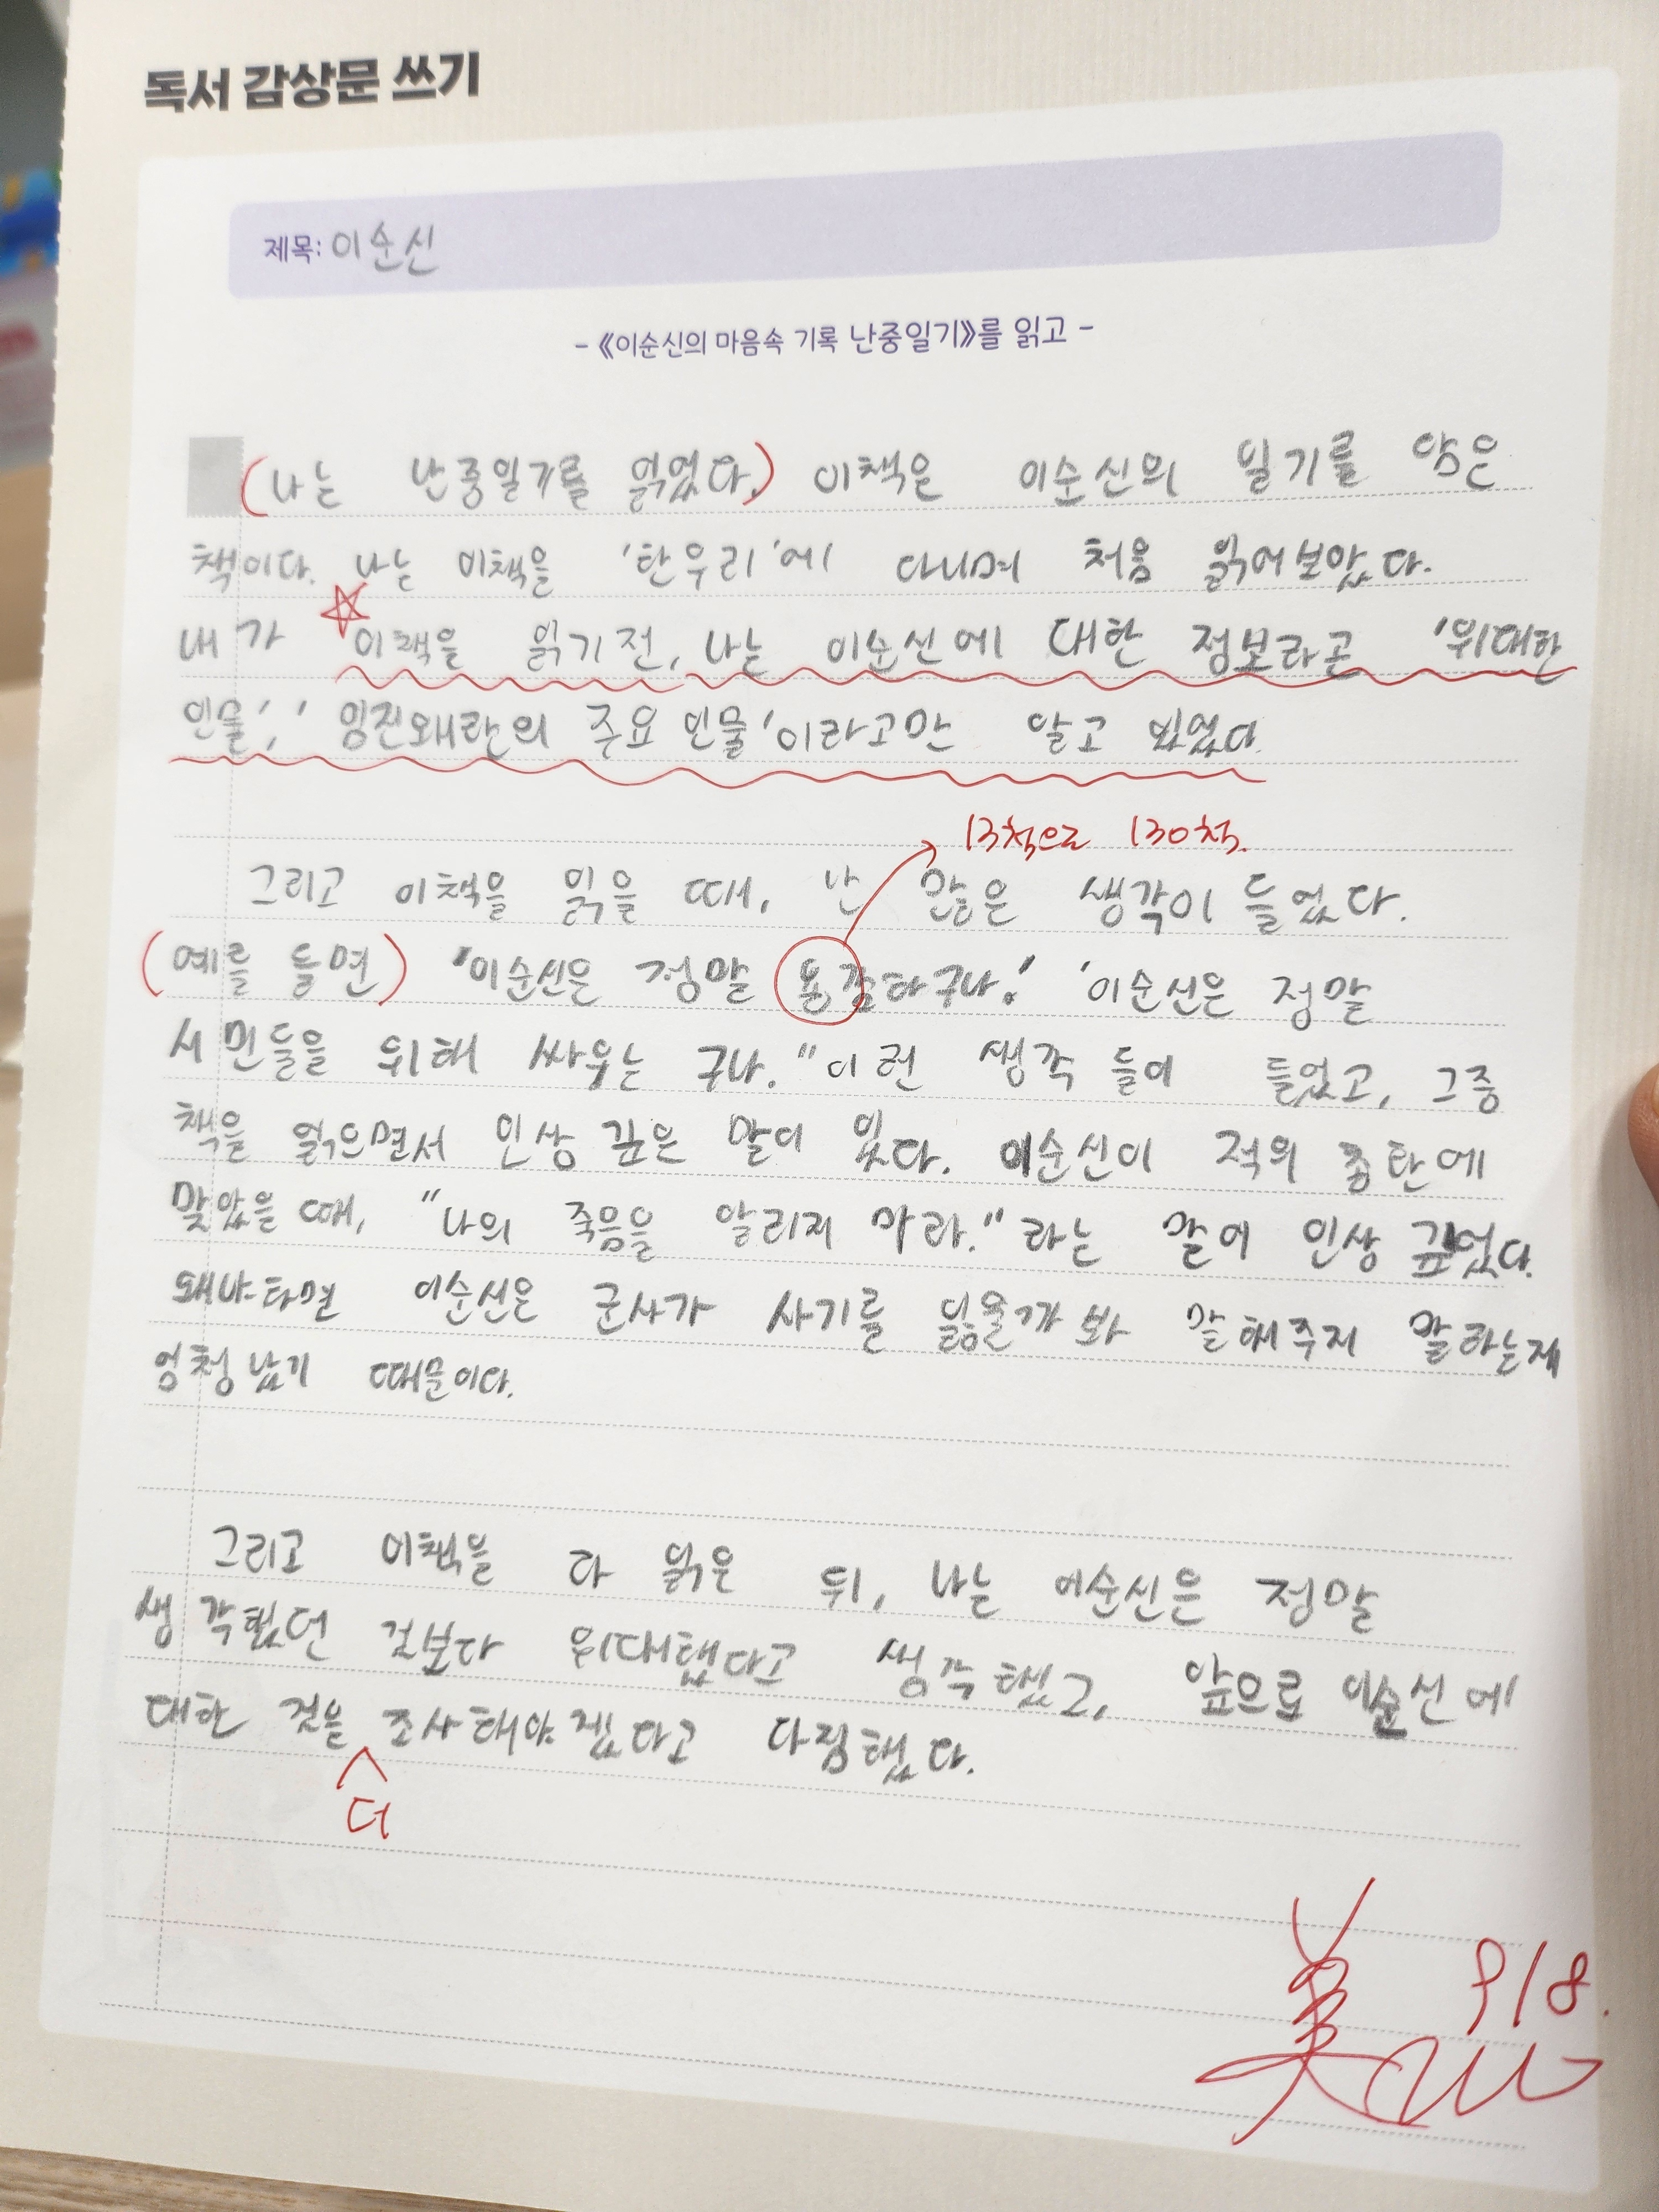 독서 감상문 쓰기
제목: 이순신
-《이순신의 마음속 기록 난중일기》를 읽고 -
(나는 난중일기를 읽었다.) 이책은 이순신의 일기를 담은
책이다. 나는 이책을 '한우리'에 다니며 처음 읽어보았다.
내가 이책을 읽기전, 나는 이순신에 대한 정보라곤 '위대한
인물', '임진왜란의 주요 인물'이라고만 알고 있었다.
13척으로 130척.
그리고 이책을 읽을 때, 난 많은 생각이 들었다.
(예를 들면) '이순신은 정말 용감하구나.' '이순신은 정말
시민들을 위해 싸우는 구나." 이런 생각 들이 들었고, 그중
책을 읽으면서 인상 깊은 말이 있다. 이순신이 적의 총탄에
맞았을 때, "나의 죽음을 알리지 마라." 라는 말이 인상 깊었다.
왜냐하면 이순신은 군사가 사기를 잃을까 봐 말해주지 말라는게
엄청 났기 때문이다.
그리고 이책을 다 읽은 뒤, 나는 이순신은 정말
생각했던 것보다 위대했다고 생각했고, 앞으로 이순신에
대한 것을 조사해야겠다고 다짐했다.
더
9/8.